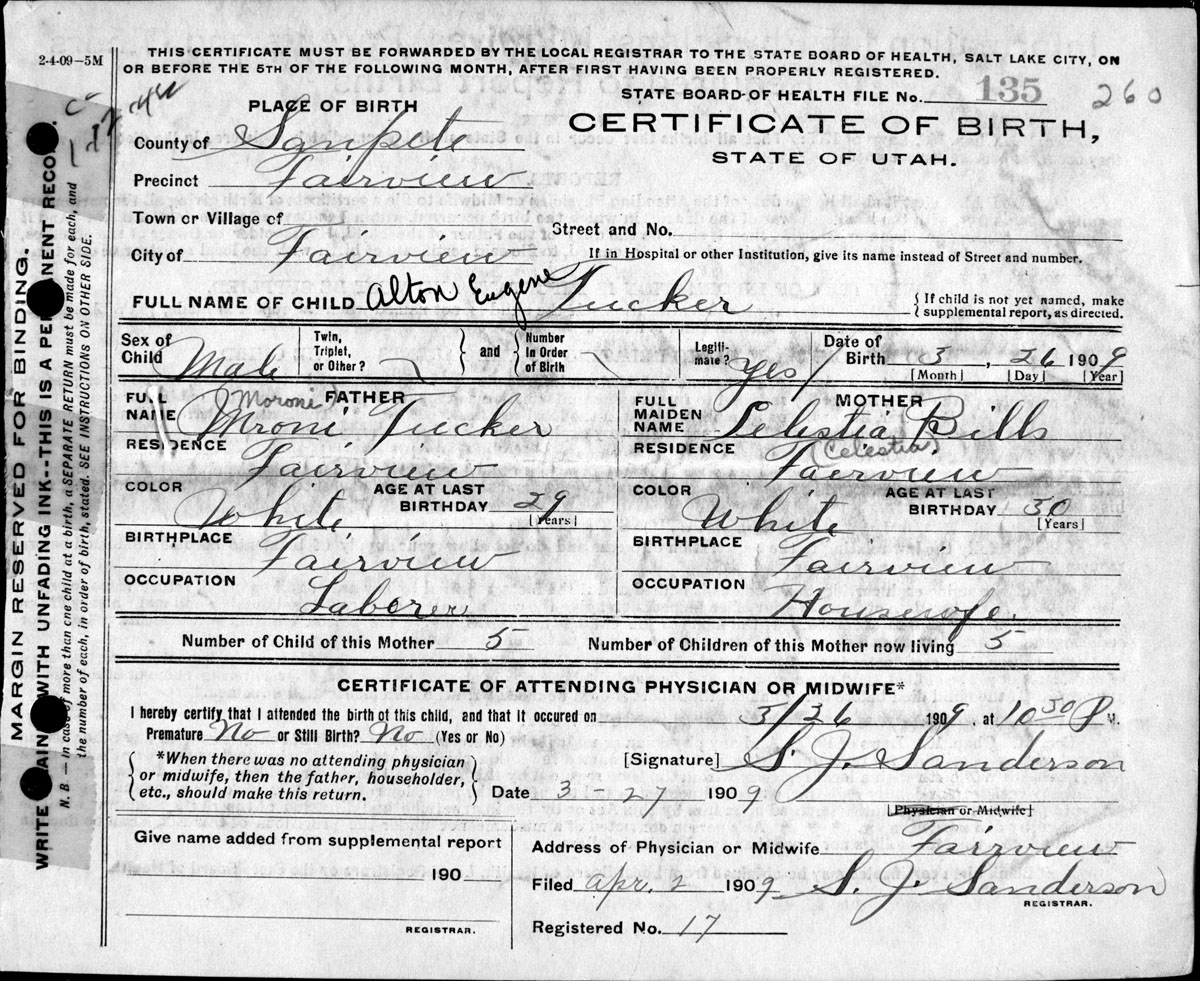 2-4-09-5M
THIS CERTIFICATE MUST BE FORWARDED BY THE LOCAL REGISTRAR TO THE STATE BOARD OF HEALTH, SALT LAKE CITY, ON
OR BEFORE THE 5TH OF THE FOLLOWING MONTH, AFTER FIRST HAVING BEEN PROPERLY REGISTERED.
STATE BOARD OF HEALTH FILE No. 135 260
CERTIFICATE OF BIRTH,
STATE OF UTAH.
PLACE OF BIRTH
County of Sanpete
Precinct Fairview
Town or Village of
Street and No.
City of Fairview
If in Hospital or other Institution, give its name instead of Street and number.
FULL NAME OF CHILD Alton Eugene Tucker
{If child is not yet named, make
supplemental report, as directed.
Sex of Child Male
Twin, Triplet, or Other?
and
Number in Order of Birth
Legiti-mate? Yes
Date of Birth 3, 26 1909
[Month] [Day] [Year]
FATHER
FULL NAME Moroni
Mroni Tucker
RESIDENCE Fairview
COLOR White
AGE AT LAST BIRTHDAY 29
[Years]
BIRTHPLACE Fairview
OCCUPATION Laborer
MOTHER
FULL MAIDEN NAME Lelestia Bills
RESIDENCE (Celestia)
Fairview
COLOR White
AGE AT LAST BIRTHDAY 30
[Years]
BIRTHPLACE Fairview
OCCUPATION Housewife.
Number of Child of this Mother 5
Number of Children of this Mother now living 5
CERTIFICATE OF ATTENDING PHYSICIAN OR MIDWIFE*
I hereby certify that I attended the birth of this child, and that it occured on 3/26 1909, at 10 30 P M.
Premature No or Still Birth? No (Yes or No)
*When there was no attending physician
or midwife, then the father, householder,
etc., should make this return.
[Signature] S. J. Sanderson
Date 3-27 1909
[Physician or Midwife]
Give name added from supplemental report
190
REGISTRAR.
Address of Physician or Midwife Fairview
Filed Apr. 2 1909 S. J. Sanderson
REGISTRAR.
Registered No. 17
MARGIN RESERVED FOR BINDING.
WRITE WITH UNFADING INK--THIS IS A
N. B.— In more than one child at a birth, a SEPARATE RETURN must be made for each, and
the number of each, in order of birth, stated. SEE INSTRUCTIONS ON OTHER SIDE.